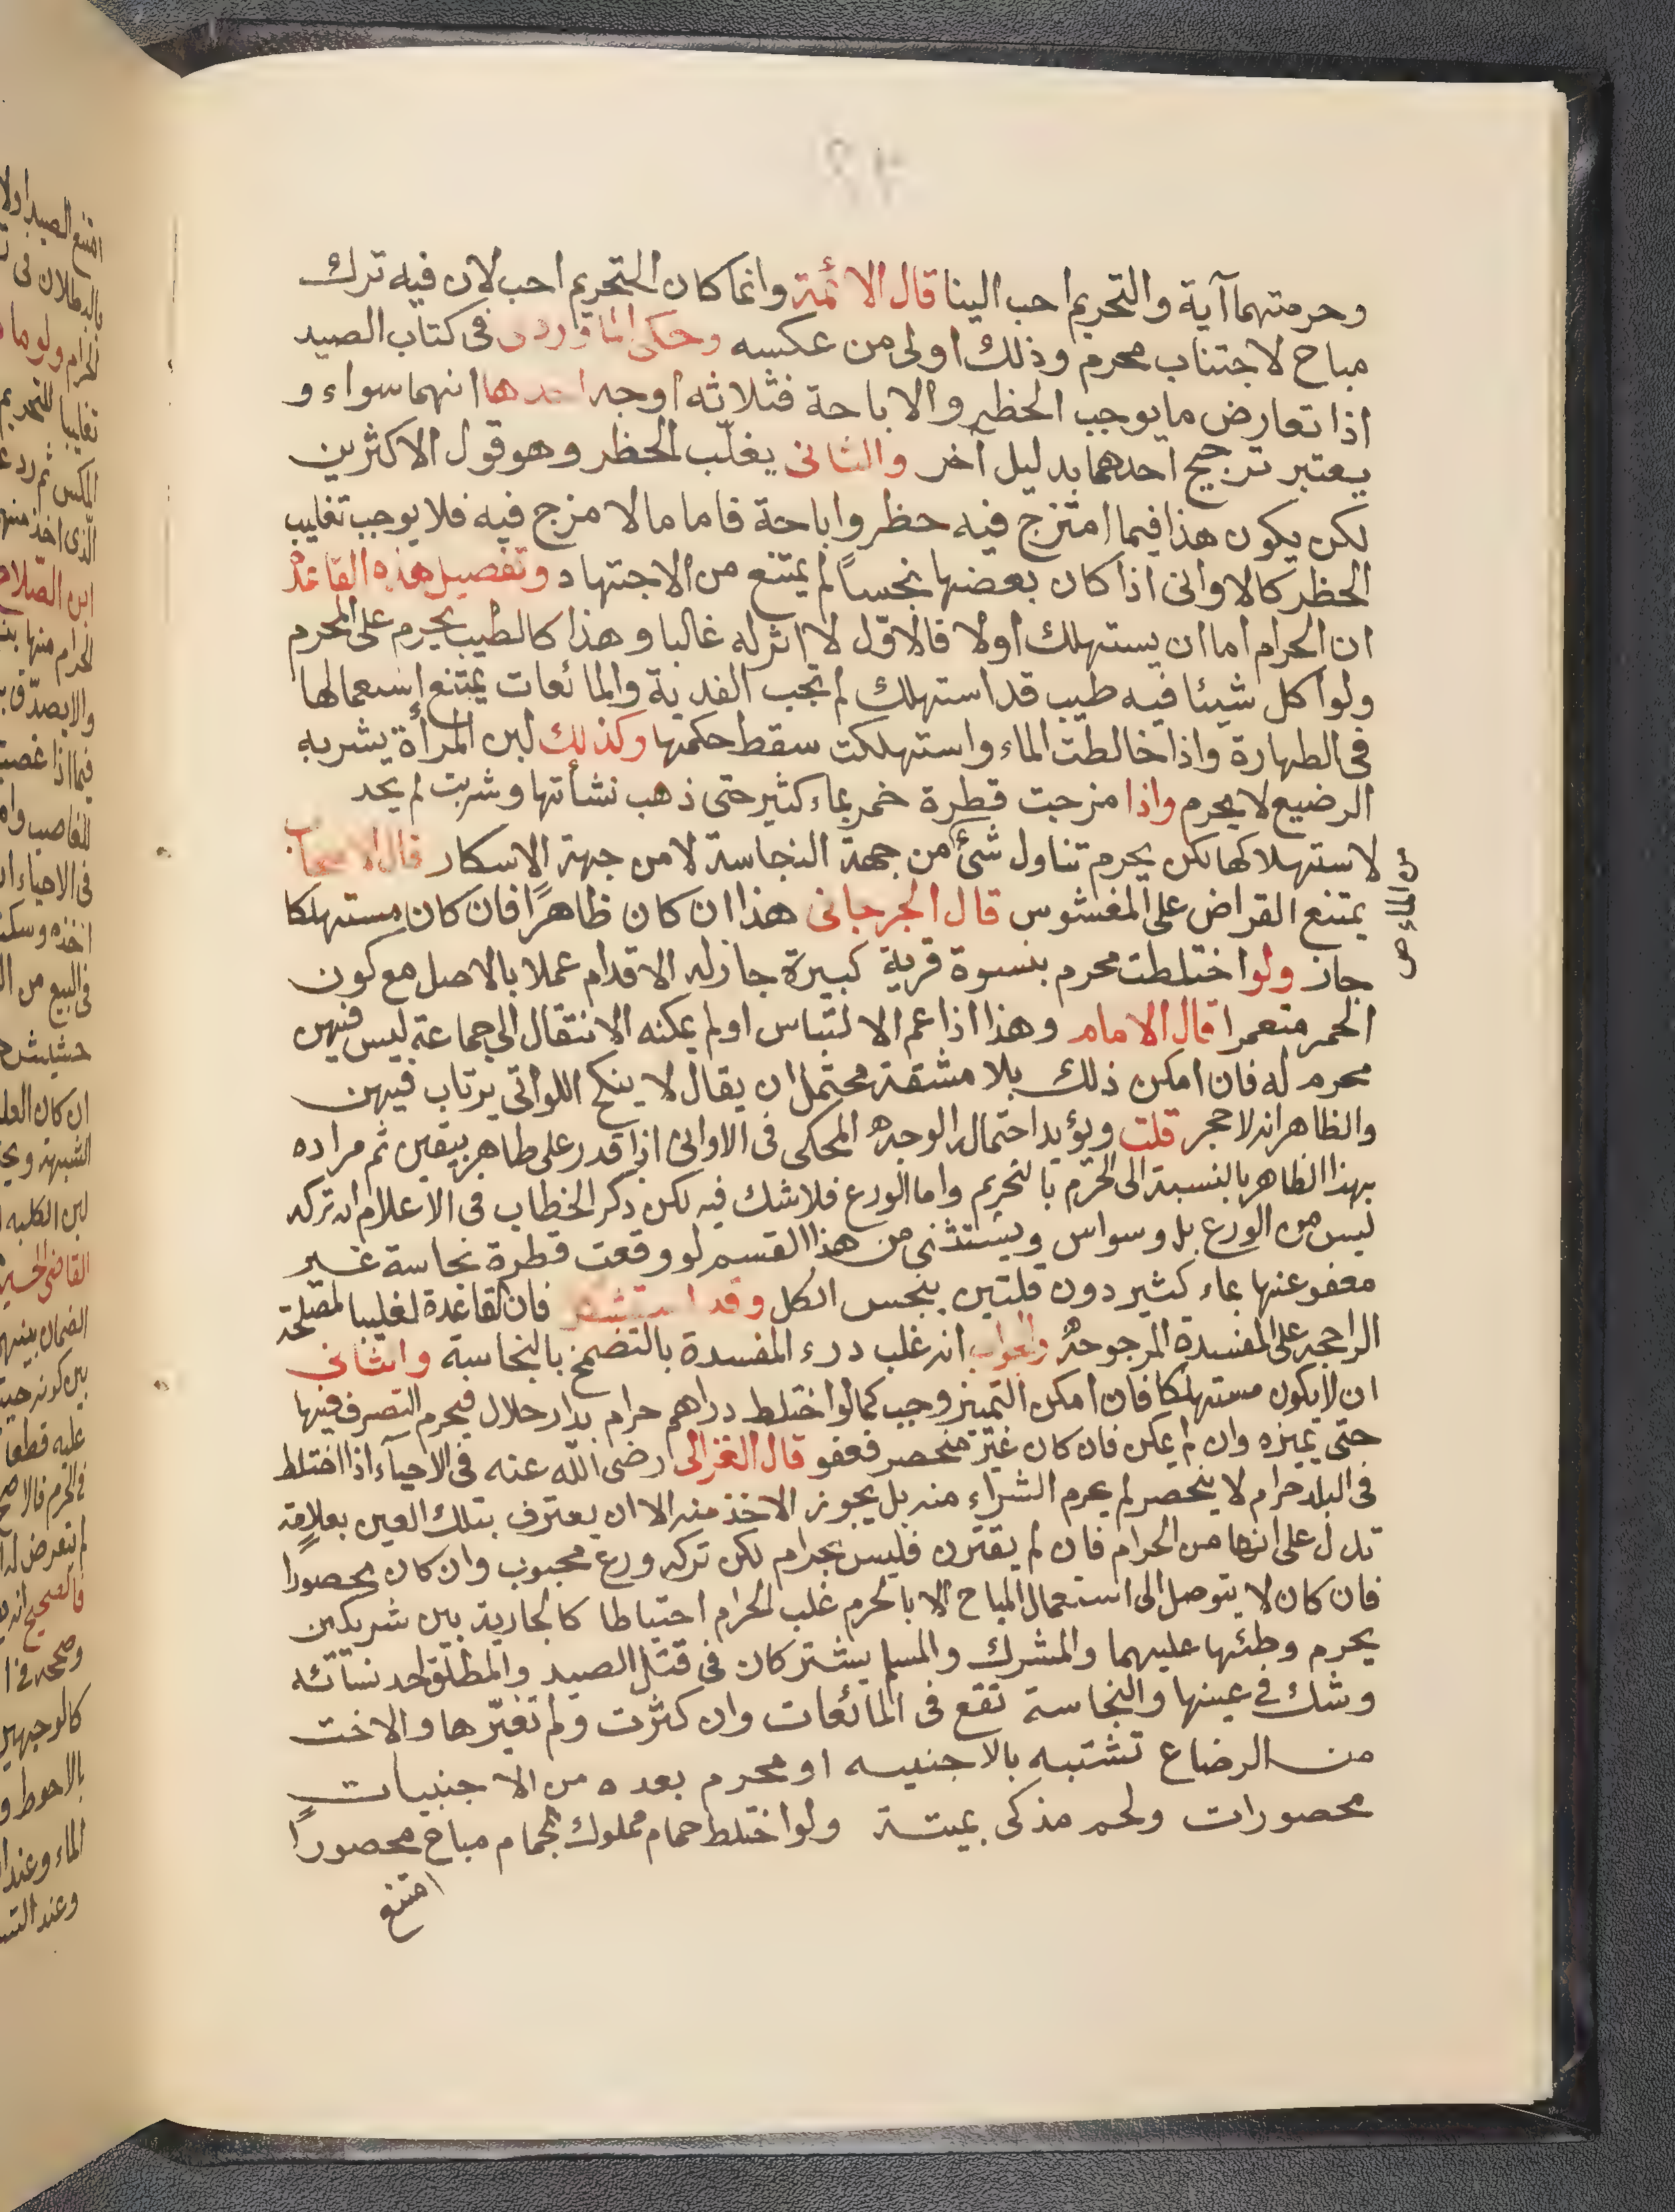 وحرمتهما آية والتحريم احب الينا قال الائمة وانما كان التحريم احب لان فيه ترك
مباح لاجتناب محرم وذلك اولى من عكسه وحكى الماوردى فى كتاب الصيد
اذا تعارض ما يوجب الحظر والاباحة فثلاثه اوجه احدها انهما سواء و
يعتبر ترجيح احدهما بدليل آخر والثانى يغلّب الحظر وهو قول الاكثرين
لكن يكون هذا فيما امتزج فيه حظر واباحة فاما ما لا مزج فيه فلا يوجب تغليب
الحظر كالاوانى اذا كان بعضها نجساً لم يمتنع من الاجتهاد وتفصيل هذه القاعدة
ان الحرام اما ان يستهلك اولا فالاوّل لا اثر له غالبا وهذا كالطيب يحرم على المحرم
ولو اكل شيئا فيه طيب قد استهلك لم تجب الفدية والمائعات يمتنع استعمالها
فى الطهارة واذا خالطت الماء واستهلكت سقط حكمها وكذلك لبن المرأة يشربه
الرضيع لا يحرم واذا مزجت قطرة خمر بماء كثير حتى ذهب نشأتها وشربت لم يحد
لاستهلاكها لكن يحرم تناول شئ من جهة النجاسة لا من جهة الاسكار قال الاصحاب
يمتنع القراض على المغشوس قال الجرجانى هذا ان كان ظاهراً فان كان مستهلكا
جاز ولو اختلطت محرم بنسوة قرية كبيرة جاز له الاقدام عملا بالاصل مع كون
الحمر متعمرا قال الامام وهذا اذا عم الالتباس اولم يمكنه الانتقال الى جماعة ليس فيهن
محرم له فان امكن ذلك بلا مشقة محتمل ان يقال لا ينكح اللواتى يرتاب فيهن
والظاهر انه لا حجر قلت ويؤيد احتماله الوجه المحكى فى الاوانى اذا قدر على طاهر بيقين ثم مراده
بهذا الظاهر بالنسبة الى التحريم واما الورع فلا شك فيه لكن ذكر الخطاب فى الاعلام ان تركه
ليس من الورع بل وسواس ويستثنى من هذا القسم لو وقعت قطرة نجاسة غير
معفو عنها بماء كثير دون قلتين ينجس الكل وقد استشعر فان القاعدة تغليب المصلحة
الراجحه على المفسدة المرجوحة والجواب انه غلب درء المفسدة بالتضمخ بالنجاسة والثانى
ان لا يكون مستهلكا فان امكن التميز وجب كما لو اختلط دراهم حرام بدار حلال فيحرم التصرف فيها
حتى يميزه وان لم يمكن فان كان غير منحصر فعفو قال الغزالى رضى الله عنه فى الاحياء اذا اختلط
فى البلد حرام لا ينحصر لم يحرم الشراء منه بل يجوز الاخذ منه الا ان يعترف بتلك العين بعلامة
تدل على انها من الحرام فان لم يقترن فليس بحرام لكن تركه ورع محبوب وان كان محصورا
فان كان لا يتوصل الى استعمال المباح الا بالحرم غلب الحرام احتياطا كالجارية بين شريكين
يحرم وطئها عليهما والمشرك والمسلم يشتركان فى قتل الصيد والمطلق احد نسائه
وشك فى عينها والنجاسة تقع فى المائعات وان كثرت ولم تغيّرها والاخت
من الرضاع تشتبه بالاجنبيه او محرم بعده من الاجنبيات
محصورات ولحم مذكى بميتة ولو اختلط حمام مملوك بحمام مباح محصوراً
امتنع
من الماء ص